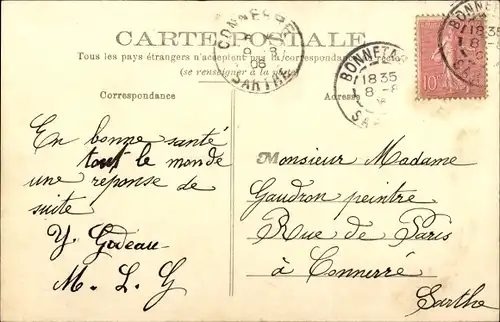 CARTE POSTALE
Tous les pays étrangers n'acceptent pas la correspondance au recto
(se renseigner à la poste)
CONNERRÉ
9
8
06
SARTHE
BONNETA
18 35
8 - 8
SAR
BONNETA
18 35
8
SAR
10
Correspondance
Adresse
En bonne santé
tout le monde
une reponse de
suite
Y. Godeau
M. L. G
Monsieur Madame
Gaudron peintre
Rue de Paris
à Connerré
Sarthe